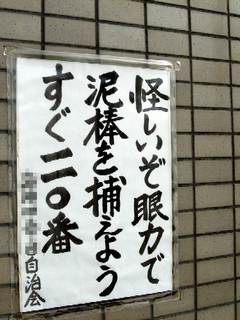 怪しいぞ眼力で
泥棒を捕えよう
すぐ一一〇番
自治会